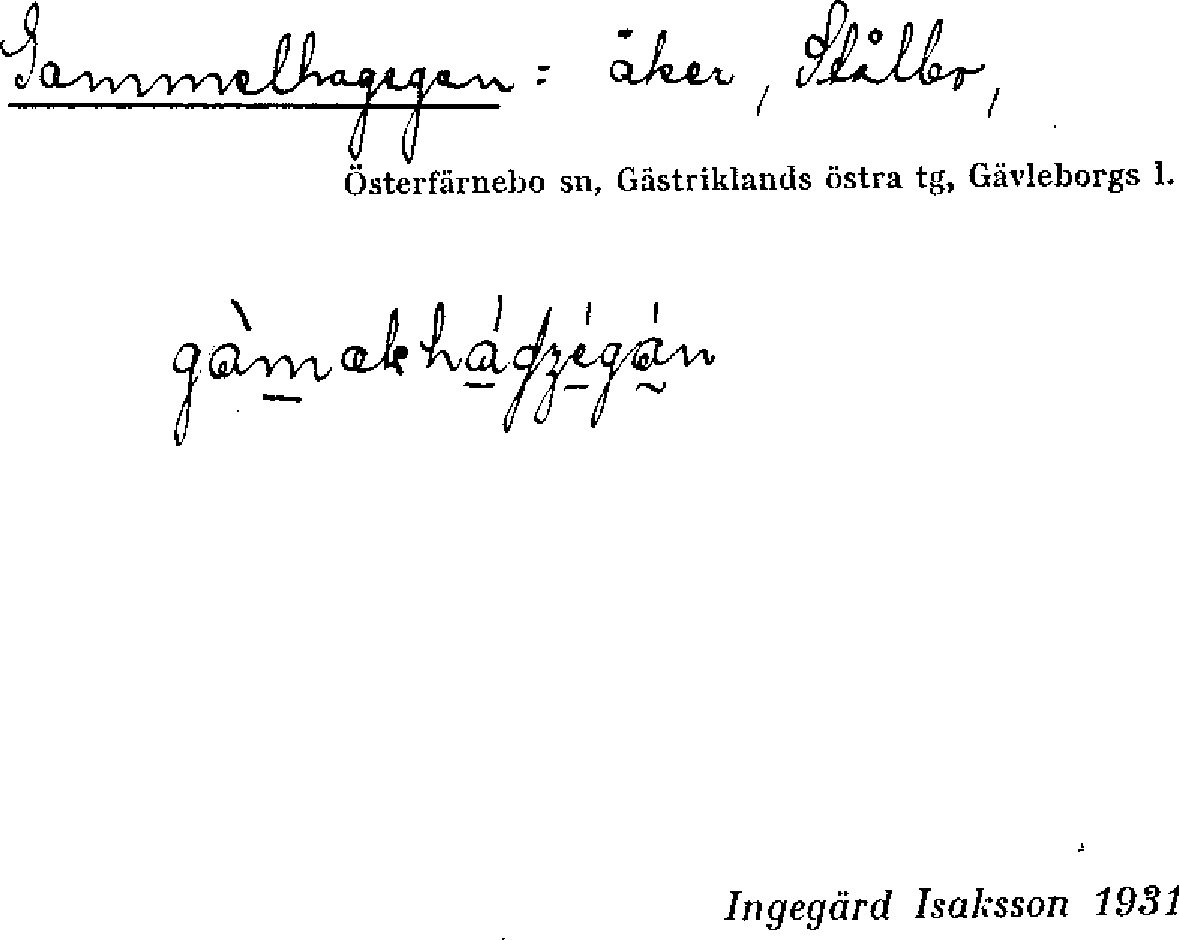 Gammelhagegen: åker, Stålbo,
Österfärnebo sn, Gästriklands östra tg, Gävleborgs l.
Ingegärd Isaksson 1931